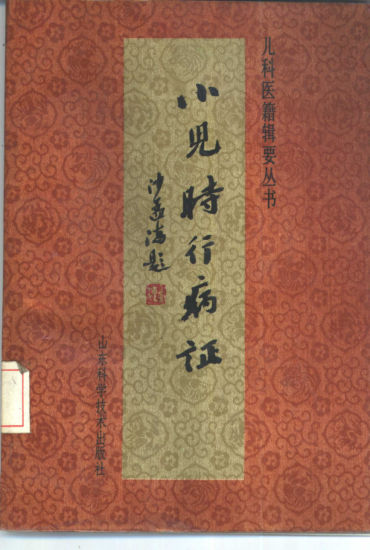 儿科医籍辑要丛书
小児時行病証
山东科学技术出版社